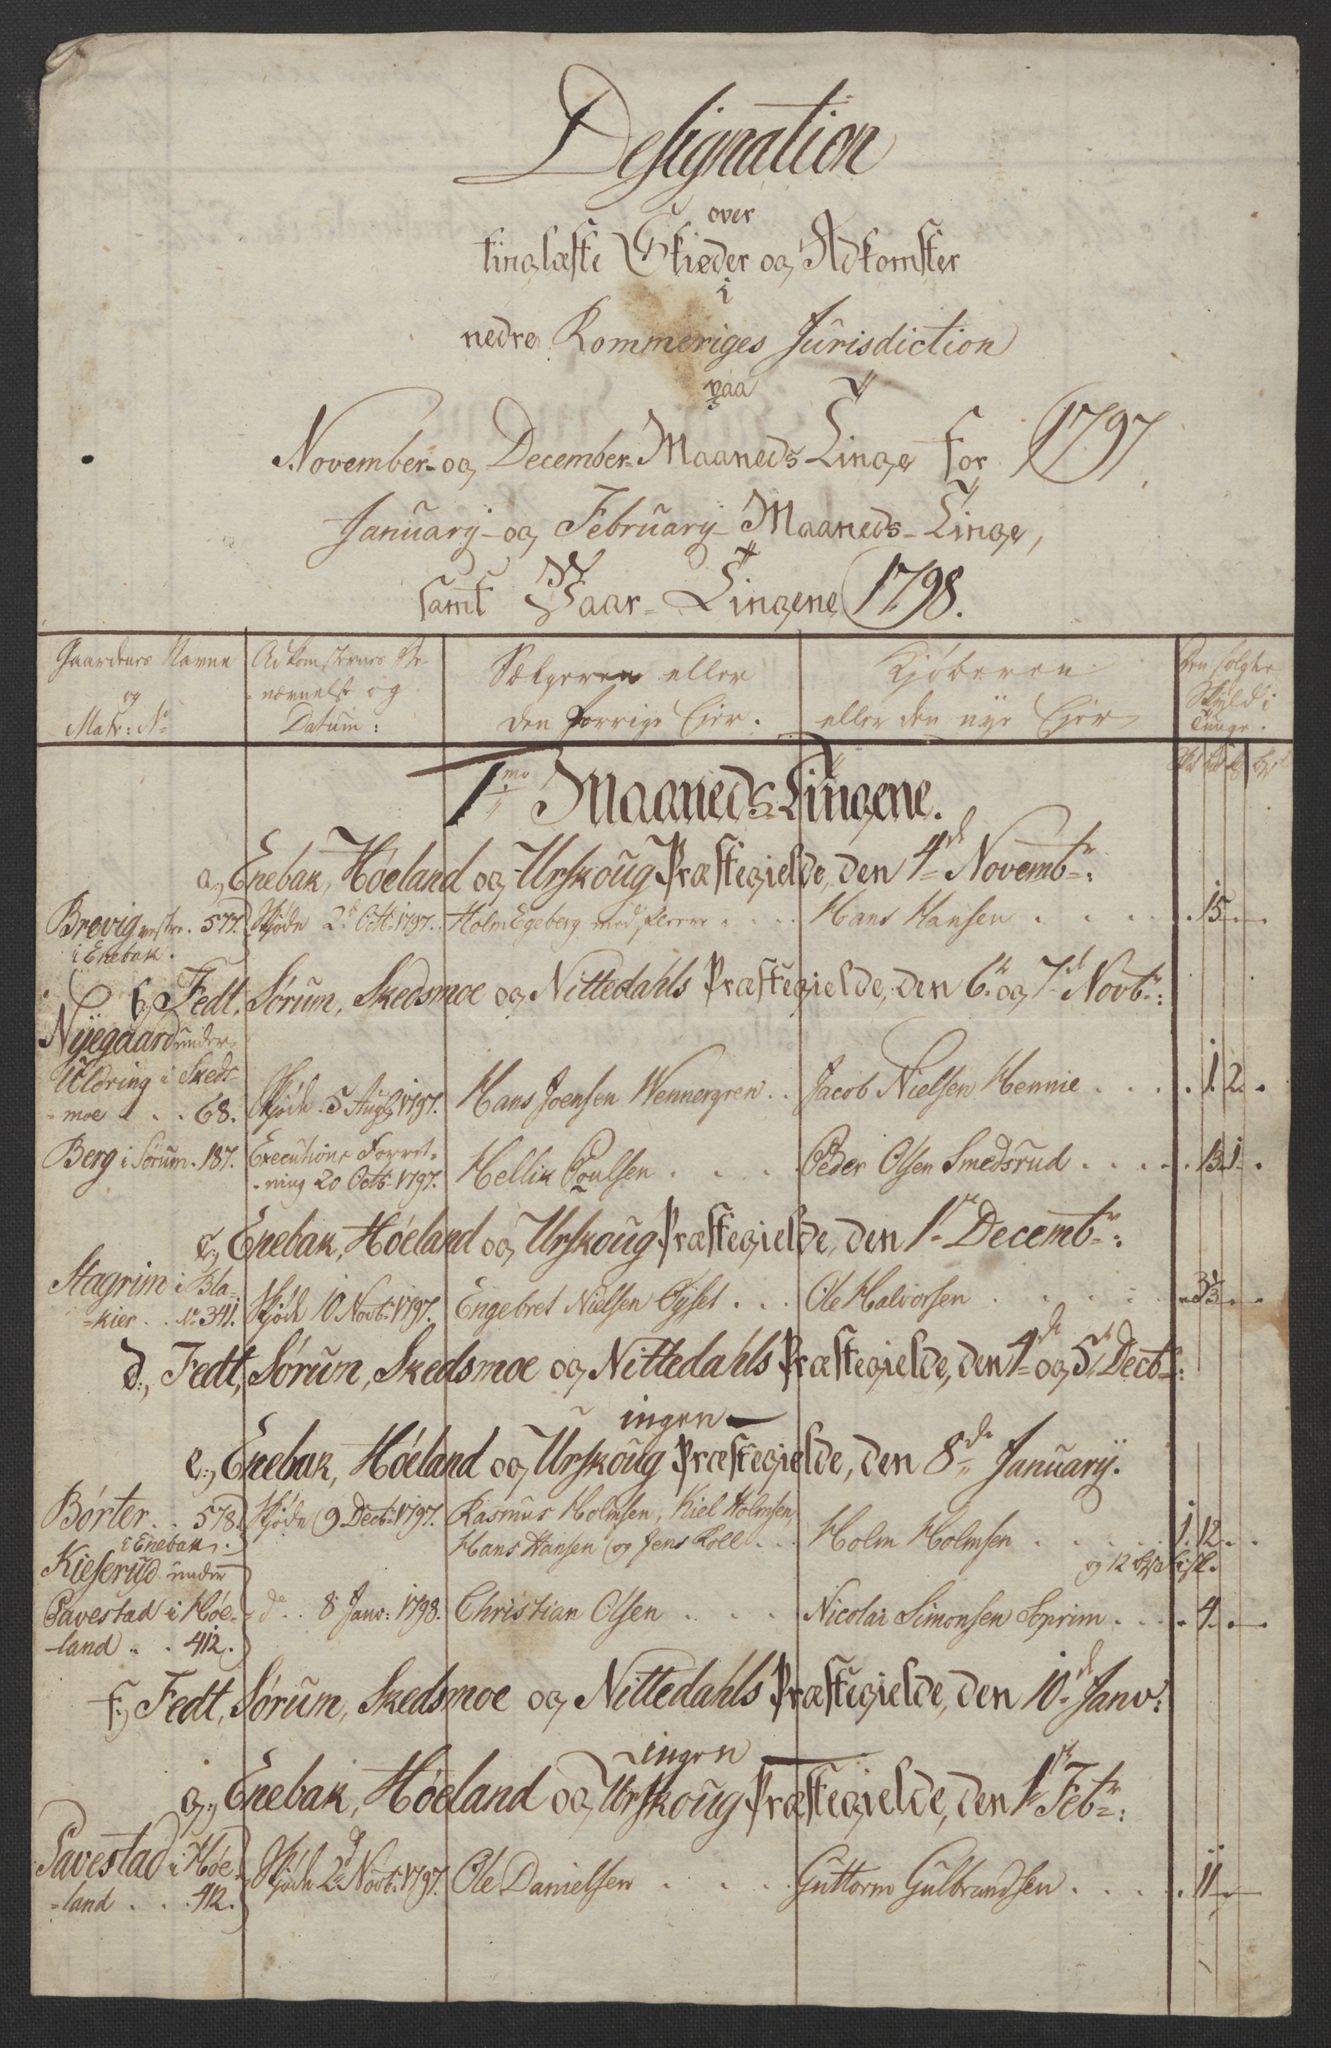 Designation
over
tinglæste Skiøder og Adkomster
i
nedre Rommeriges Jurisdiction
paa
November- og December- Maaneds Tinge for 1797,
January- og February- Maaneds- Tinge,
samt Vaar- Tingene 1798.
Gaardens Navne og Matr: No
Adkomsternes Benævnelse og Datum:
Sælgeren eller den forrige Eier.
Kjøberen eller den nye Eier
Den solgte Skyld i Tunge.
1mo Maaneds Tingene.
a, Enebak, Høeland og Urskoug Præstegielde, den 4de Novembr:
Brevig vestre . 577. Skjøde 2d Octbr 1797. Holm Egeberg med fleere . . . Hans Hansen . . . . . 15
i Enebak.
b, Fedt, Sørum, Skedsmoe og Nittedahls Præstegielde, den 6te og 7de Novbr:
Nyegaard under
Uldring i Skeds-
-moe . . . 68. Skjøde 5 Augs 1797. Hans Joensen Wennergren . . Jacob Nielsen Hennie . . . . 1. 2.
Berg i Sørum . 187. Executions Forret-
-ning 20 Octbr 1797. Hellik Poulsen . . . . Peder Olsen Smedsrud . . . . . 13. 1.
c, Enebak, Høeland og Urskoug Præstegielde, den 1te Decembr:
Stagrim i Bla-
-kier . . No 341. Skjøde 10 Novbr 1797. Engebret Nielsen Øyset . . . Ole Halvorsen . . . . . 3⅓
d, Fedt, Sørum, Skedsmoe og Nittedahls Præstegielde, den 4de og 5te Decbr:
ingen
e, Enebak, Høeland og Urskoug Præstegielde, den 8de Januarij.
Børter . . . 578. Skjøde 9 Decbr 1797. Rasmus Holmsen, Kiel Holmsen,
i Enebak. Hans Hansen og Jens Roll . . . Holm Holmsen . . . . . 1. 12.
Kieserud under og 12
Tavestad i Høe-
-land . . . 412. do . . 8 Janv: 1798. Christian Olsen . . . . Nicolai Simonsen Soprim . . . . 4
f, Fedt, Sørum, Skedsmoe og Nittedahls Præstegielde, den 10de Janv:
ingen
g, Enebak, Høeland og Urskoug Præstegielde, den 1te Febr:
Tavestad i Høe-
-land . . . 412. Skjøde 2d Novbr 1797. Ole Danielsen . . . . Guttorm Gulbrandsen . . . . . 11